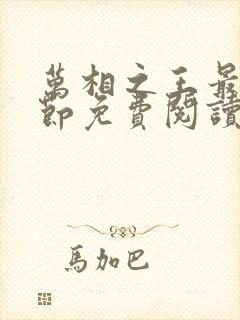 萬相之王最
節免費閱讀
馬加巴